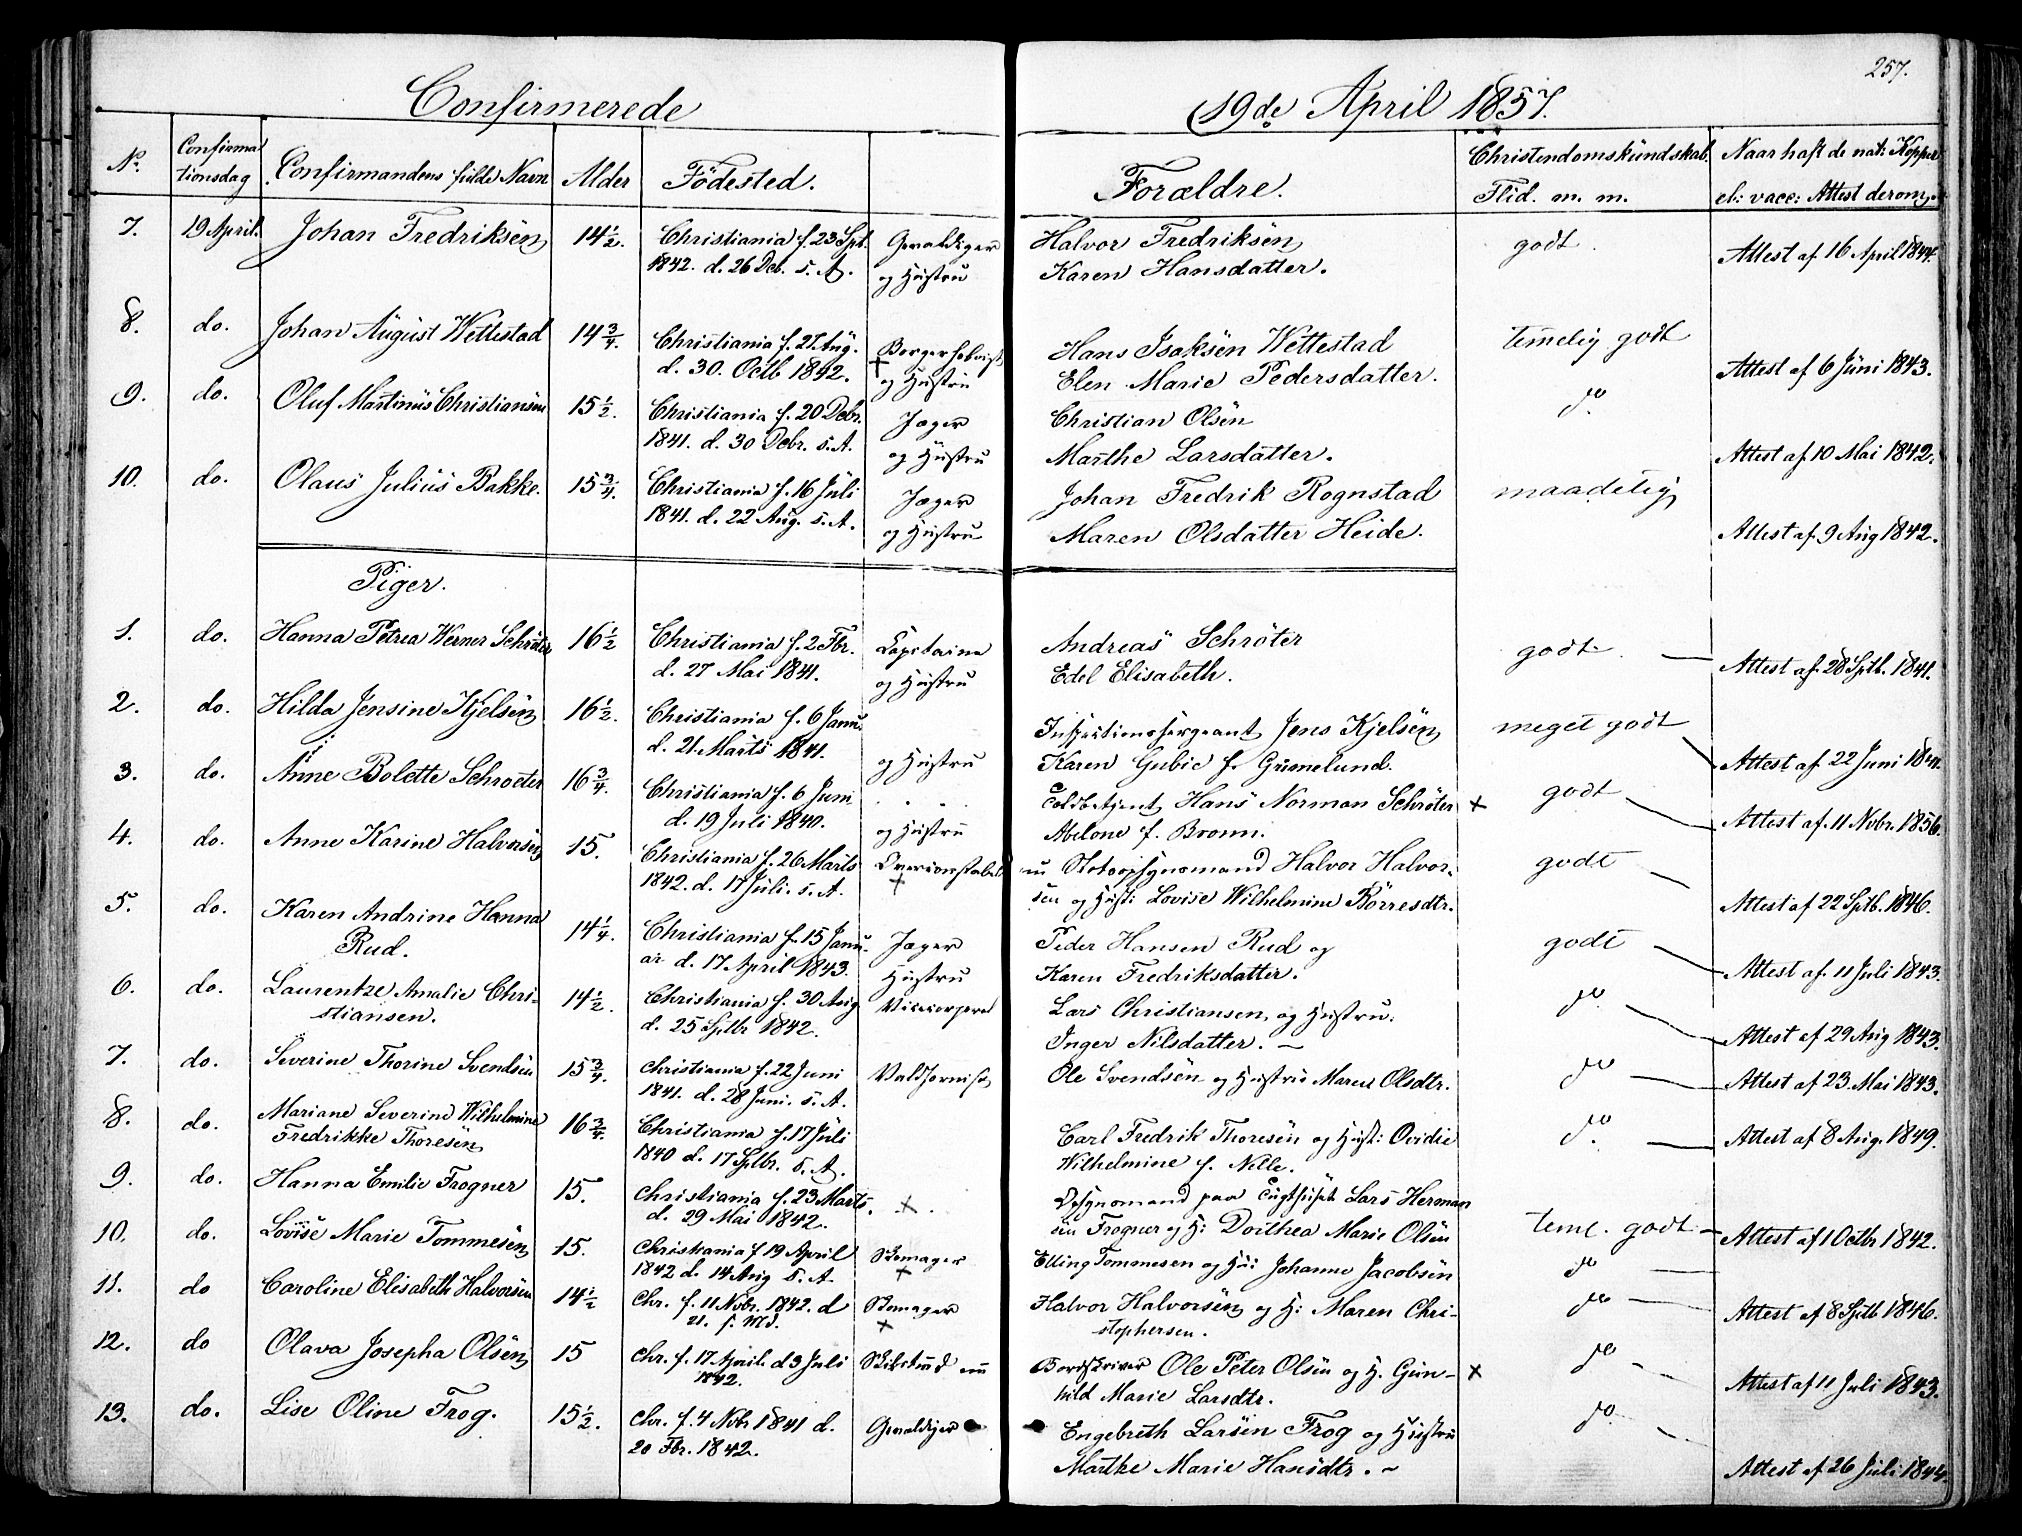 257.
Confirmerede 19de April 1857.
No. Confirmationsdag Confirmandens fulde Navn Alder Födested. Forældre. Christendomskundskab, Flid. m. m. Naar haft de nat: Kopper el: vacc: Attest derom.
7. 19 April. Johan Fredriksen 14½. Christiania f. 23 Spt. Gevaldiger Halvor Fredriksen godt. Attest af 16 April 1844.
1842. d. 26 Dcb. s. A. og Hustru Karen Hansdatter.
8. do. Johan August Wettestad 14¾. Christiania f. 27 Aug. Hans Isaksen Wettestad temelig godt Attest af 6 Juni 1843.
d. 30. Octb 1842. og Hustru Elen Marie Pedersdatter.
9. do. Oluf Martinus Christiansen 15½. Christiania f. 20 Debr. Jæger Christian Olsen do. Attest af 10 Mai 1842.
1841. d. 30 Debr. s. A. og Hustru Marthe Larsdatter.
10. do. Olaus Julius Bakke. 15¾. Christiania f. 16 Juli Jæger Johan Fredrik Rognstad maadelig Attest af 9 Aug 1842.
1841. d. 22 Aug. s. A. og Hustru Maren Olsdatter Heide.
Piger.
1. do. Hanna Petrea Werner Schröter 16½ Christiania f. 2 Fbr. Capitaine Andreas Schröter godt. Attest af 28 Sptb. 1841.
d. 27 Mai 1841. og Hustru Edel Elisabeth.
2. do. Hilda Jensine Kjelsen 16½. Christiania f. 6 Janu. Jens Kjelsen meget godt Attest af 22 Juni
d. 21. Marts 1841. og Hustru Karen Gubie f. Grimelund.
3. do. Anne Bolette Schroeter 16¾. Christiania f. 6 Juni Toldbetjent Hans Norman Schröter × godt Attest af 11 Novbr. 1856.
d. 19 Juli 1840. og Hustru Abelone f. Bronn.
4. do. Anne Karine Halvorsen 15. Christiania f. 26 Marts Halvor Halvor- godt Attest af 22 Sptb. 1846.
1842. d. 17 Juli. s. A. × sen og Hust: Lovise Wilhelmine Börresdtr.
5. do. Karen Andrine Hanna 14¼. Christiania f. 15 Janu- Jæger Peder Hansen Rud og godt Attest af 11 Juli 1843.
Rud. ar d. 17 April 1843. Hustru Karen Fredriksdatter.
6. do. Laurentze Amalie Chri- 14½. Christiania f. 30 Aug Vicecorporal Lars Christiansen, og Hustru. do. Attest af 29 Aug 1843.
stiansen. d. 25 Sptbr 1842. Inger Nilsdatter.
7. do. Severine Thorine Svendsen 15¾. Christiania f. 22 Juni Valdhornist Ole Svendsen og Hustru Maren Olsdtr. do Attest af 23. Mai 1843.
1841. d. 28 Juni. s. A.
8. do. Mariane Severine Wilhelmine 16¾. Christiania f. 17 Juli Carl Fredrik Thoresen og Hust: Ovidie do. Attest af 8 Aug. 1849.
Fredrikke Thoresen 1840 d. 17 Sptbr. s. A. Wilhelmine f. Nelle.
9. do. Hanna Emilie Frogner 15. Christiania f. 23 Marts. × Opsynsmand paa Tugthuset Lars Herman teml. godt Attest af 1 Octbr 1842.
d. 29 Mai 1842. Frogner og H: Dorthea Marie Olsen
10. do. Lovise Marie Tommesen 15. Christiania f 19 April Skomager Elling Tommesen og Hu: Johanne Jacobsen do
1842 d. 14 Aug s. A. ×
11. do Caroline Elisabeth Halvorsen 14½ Chr. f. 11 Novbr. 1842. d Skomager Halvor Halvorsen og H: Maren Chri- do Attest af 8 Sptb 1846.
21. f. Md. × stophersen.
12. do Olava Josepha Olsen 15 Chr. f. 17 April. d 3 Juli Ole Peter Olsen og H. Gun- × do Attest af 11 Juli 1843.
1842. hild Marie Larsdtr.
13. do. Lise Oline Frog. 15½. Chr. f. 4 Novbr 1841 d. Gevaldiger Engebreth Larsen Frog og Hustru do Attest af 26 Juli 1844.
20 Fbr. 1842. Marthe Marie Hansdtr.